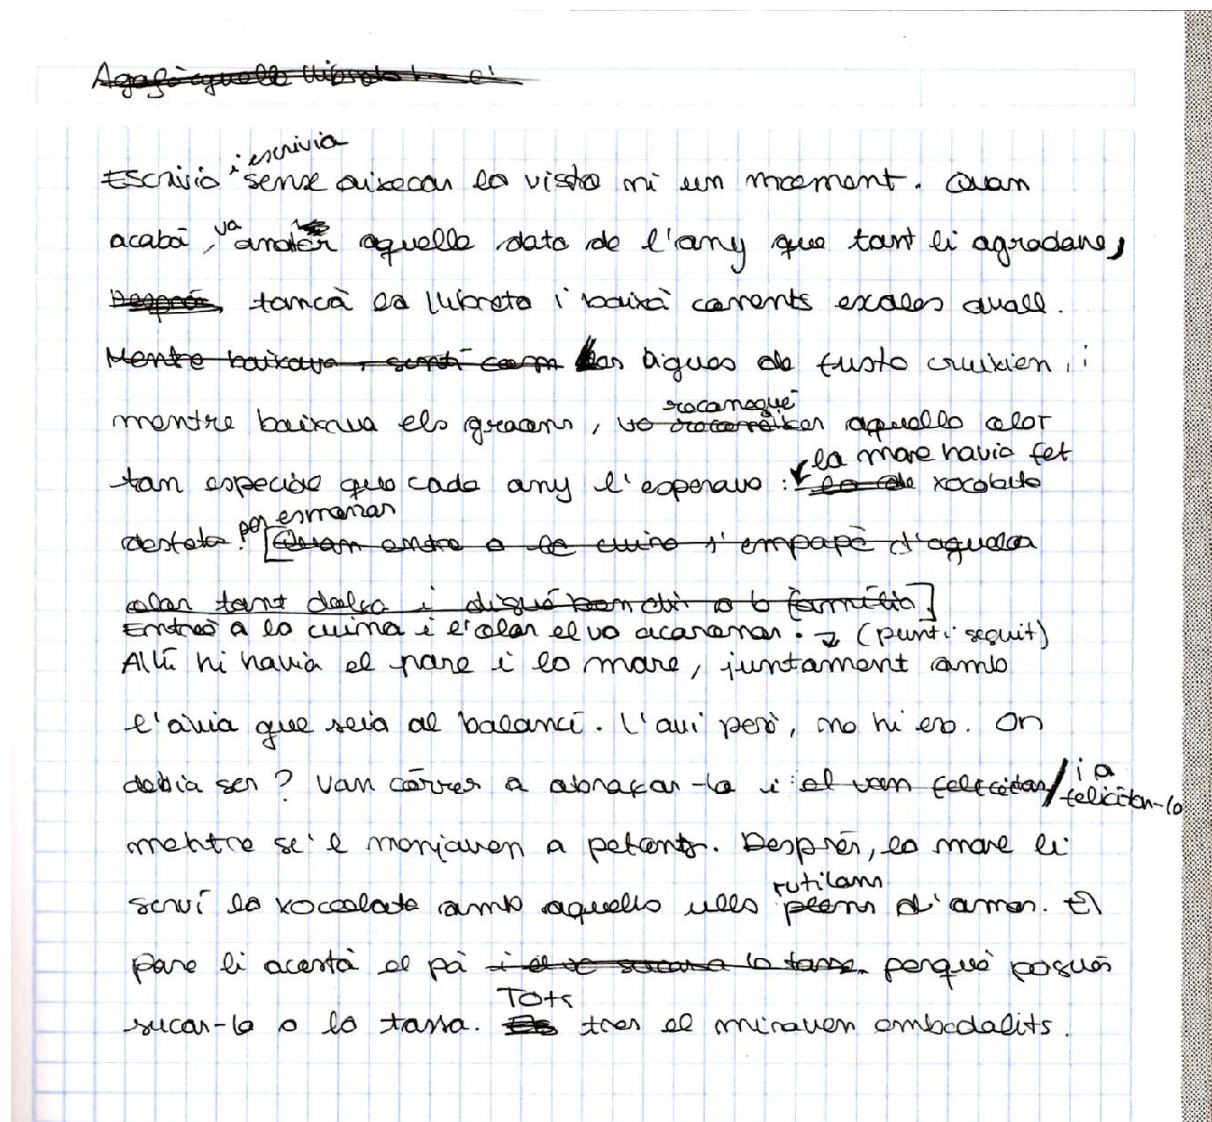 Agafà aquella llibreta
i escrivia
Escrivia sense aixecar la vista ni un moment. Quan
acabà, va anotar aquella data de l'any que tant li agradava,
Després tancà la llibreta i baixà corrents escales avall.
Mentre baixava, sentí com les bigues de fusta cruixien, i
reconegué
mentre baixava els graons, va reconèixer aquella olor
la mare havia fet
tan especial que cada any l'esperava: xocolata
per esmorzar
desfeta. [Quan entra a la cuina s'empapà d'aquella
olor tant dolça i digué bon dia a la família]
Entrà a la cuina i l'olor el va acaronar. (punt i seguit)
Allí hi havia el pare i la mare, juntament amb
l'àvia que seia al balancí. L'avi però, no hi era. On
i a
devia ser? Van córrer a abraçar-lo i el van felicitar / felicitar-lo
mentre se'l menjaven a petons. Després, la mare li
rutilans
serví la xocolata amb aquells ulls plens d'amor. El
pare li acostà el pa i el va sucar a la tassa. perquè pogués
Tots
sucar-lo a la tassa. Els tres el miraven embadalits.